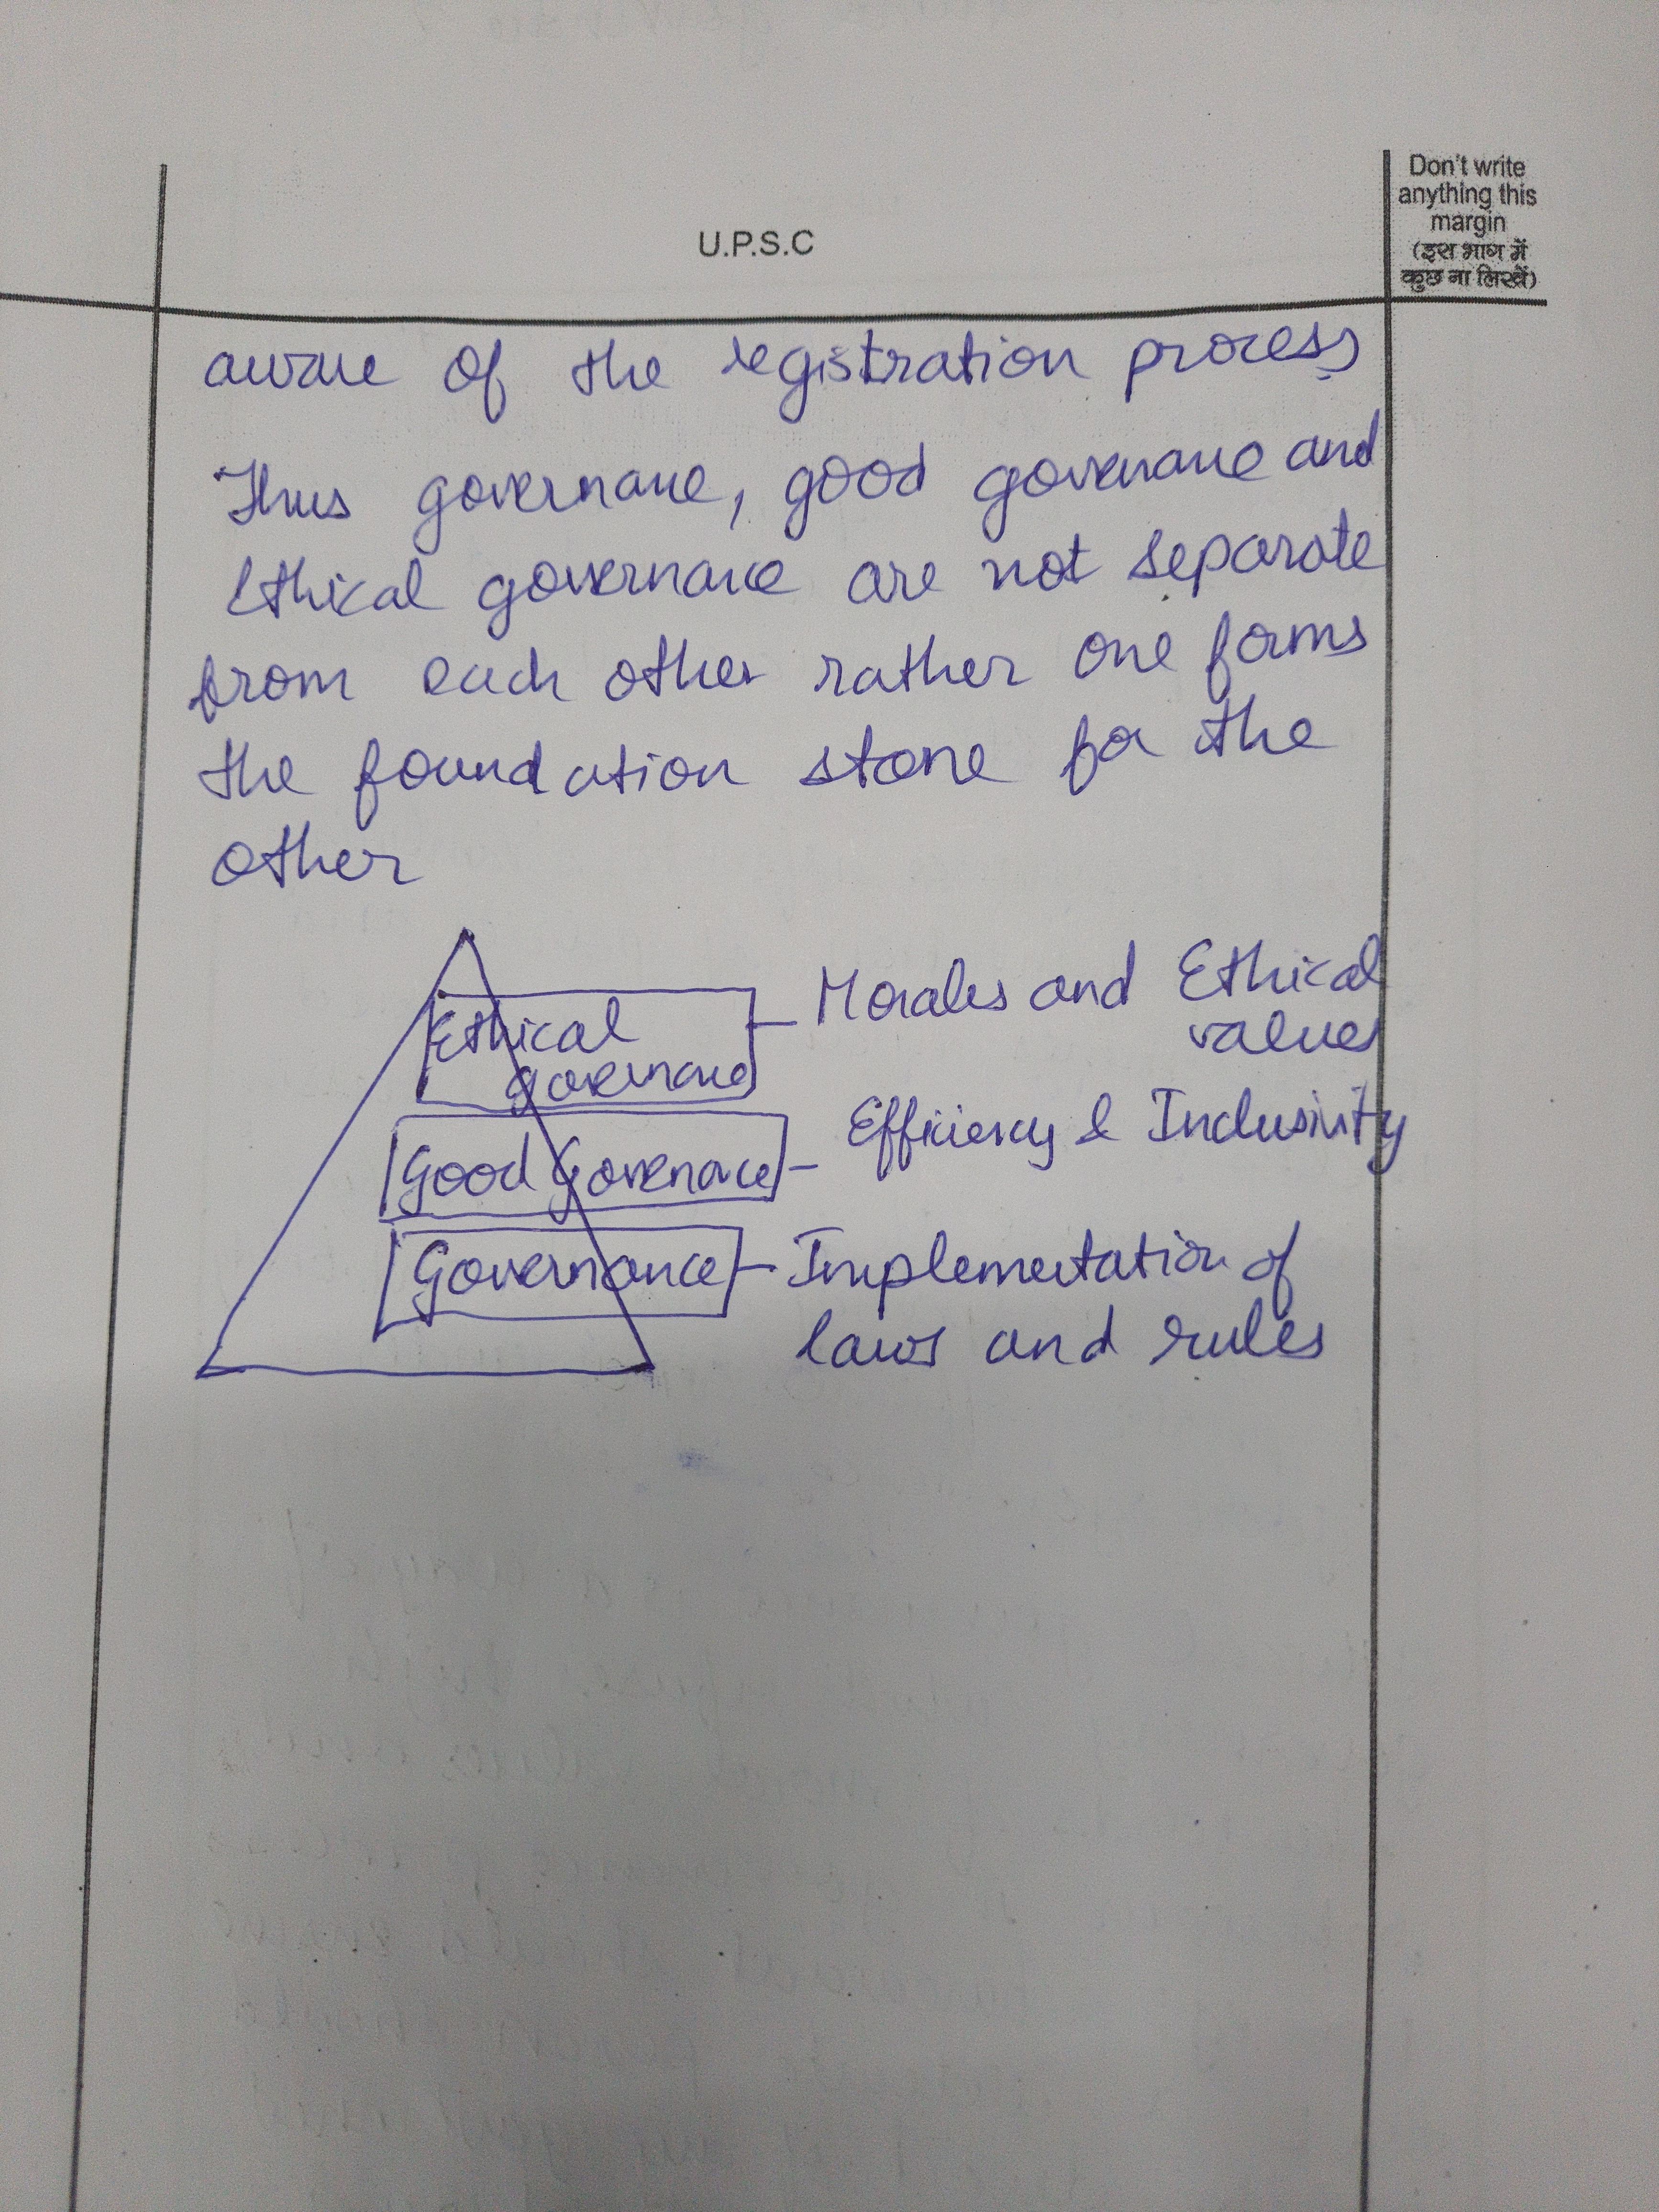 U.P.S.C
Don't write
anything this
margin
(इस भाग में
कुछ ना लिखें)
aware of the registration process
Thus governance, good governance and
Ethical governance are not separate
from each other rather one forms
the foundation stone for the
other
Ethical
governance
Morales and Ethical
values
Good Governance
Efficiency & Inclusivity
Governance
Implementation of
laws and rules